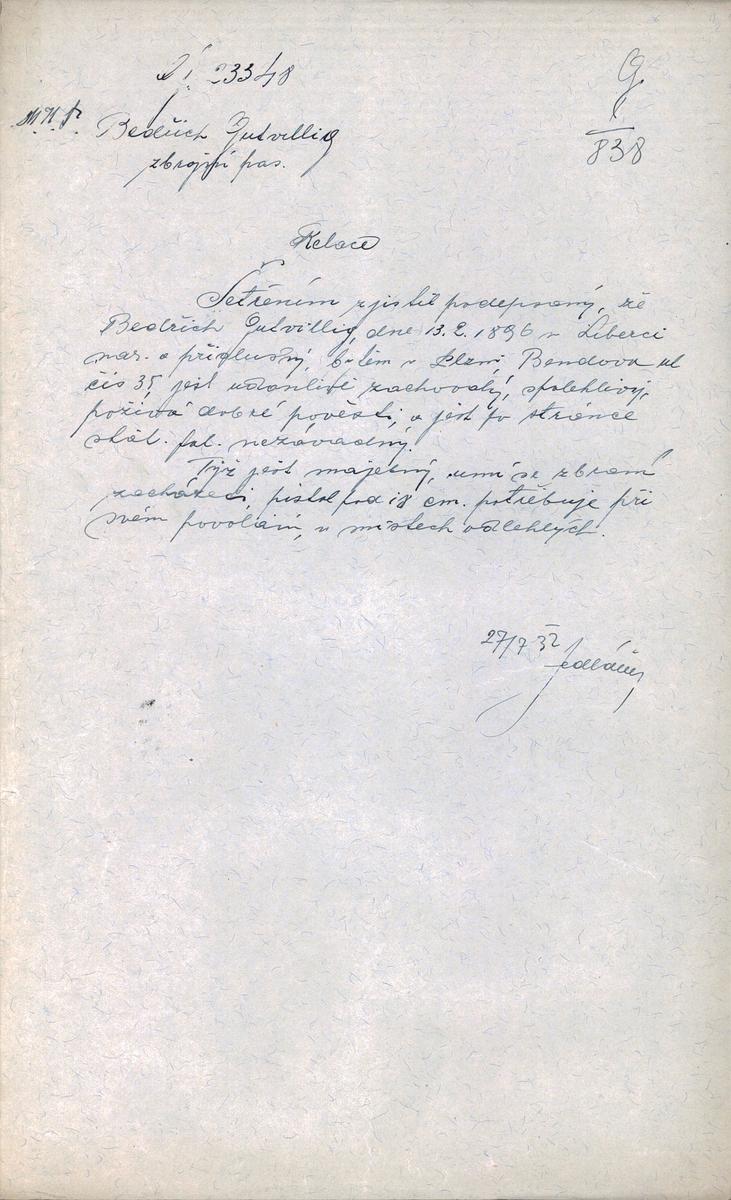 Čj. 23348
G
838
Bedřich Gutvillig
zbrojní pas.
Relace
Šetřením zjistil podepsaný, že
Bedřich Gutvillig, dne 13.2.1896 v Liberci
nar. a příslušný, bytem v Plzni, Bendova ul
čís 35, jest zachovalý, spolehlivý,
požívá dobré pověsti, a jest po stránce
stát. pol. nezávadný.
Týž jest majetný, umí se zbraní
zacházeti, pistol pod 18 cm. potřebuje při
svém povolání, v místech odlehlých.
27/7 32